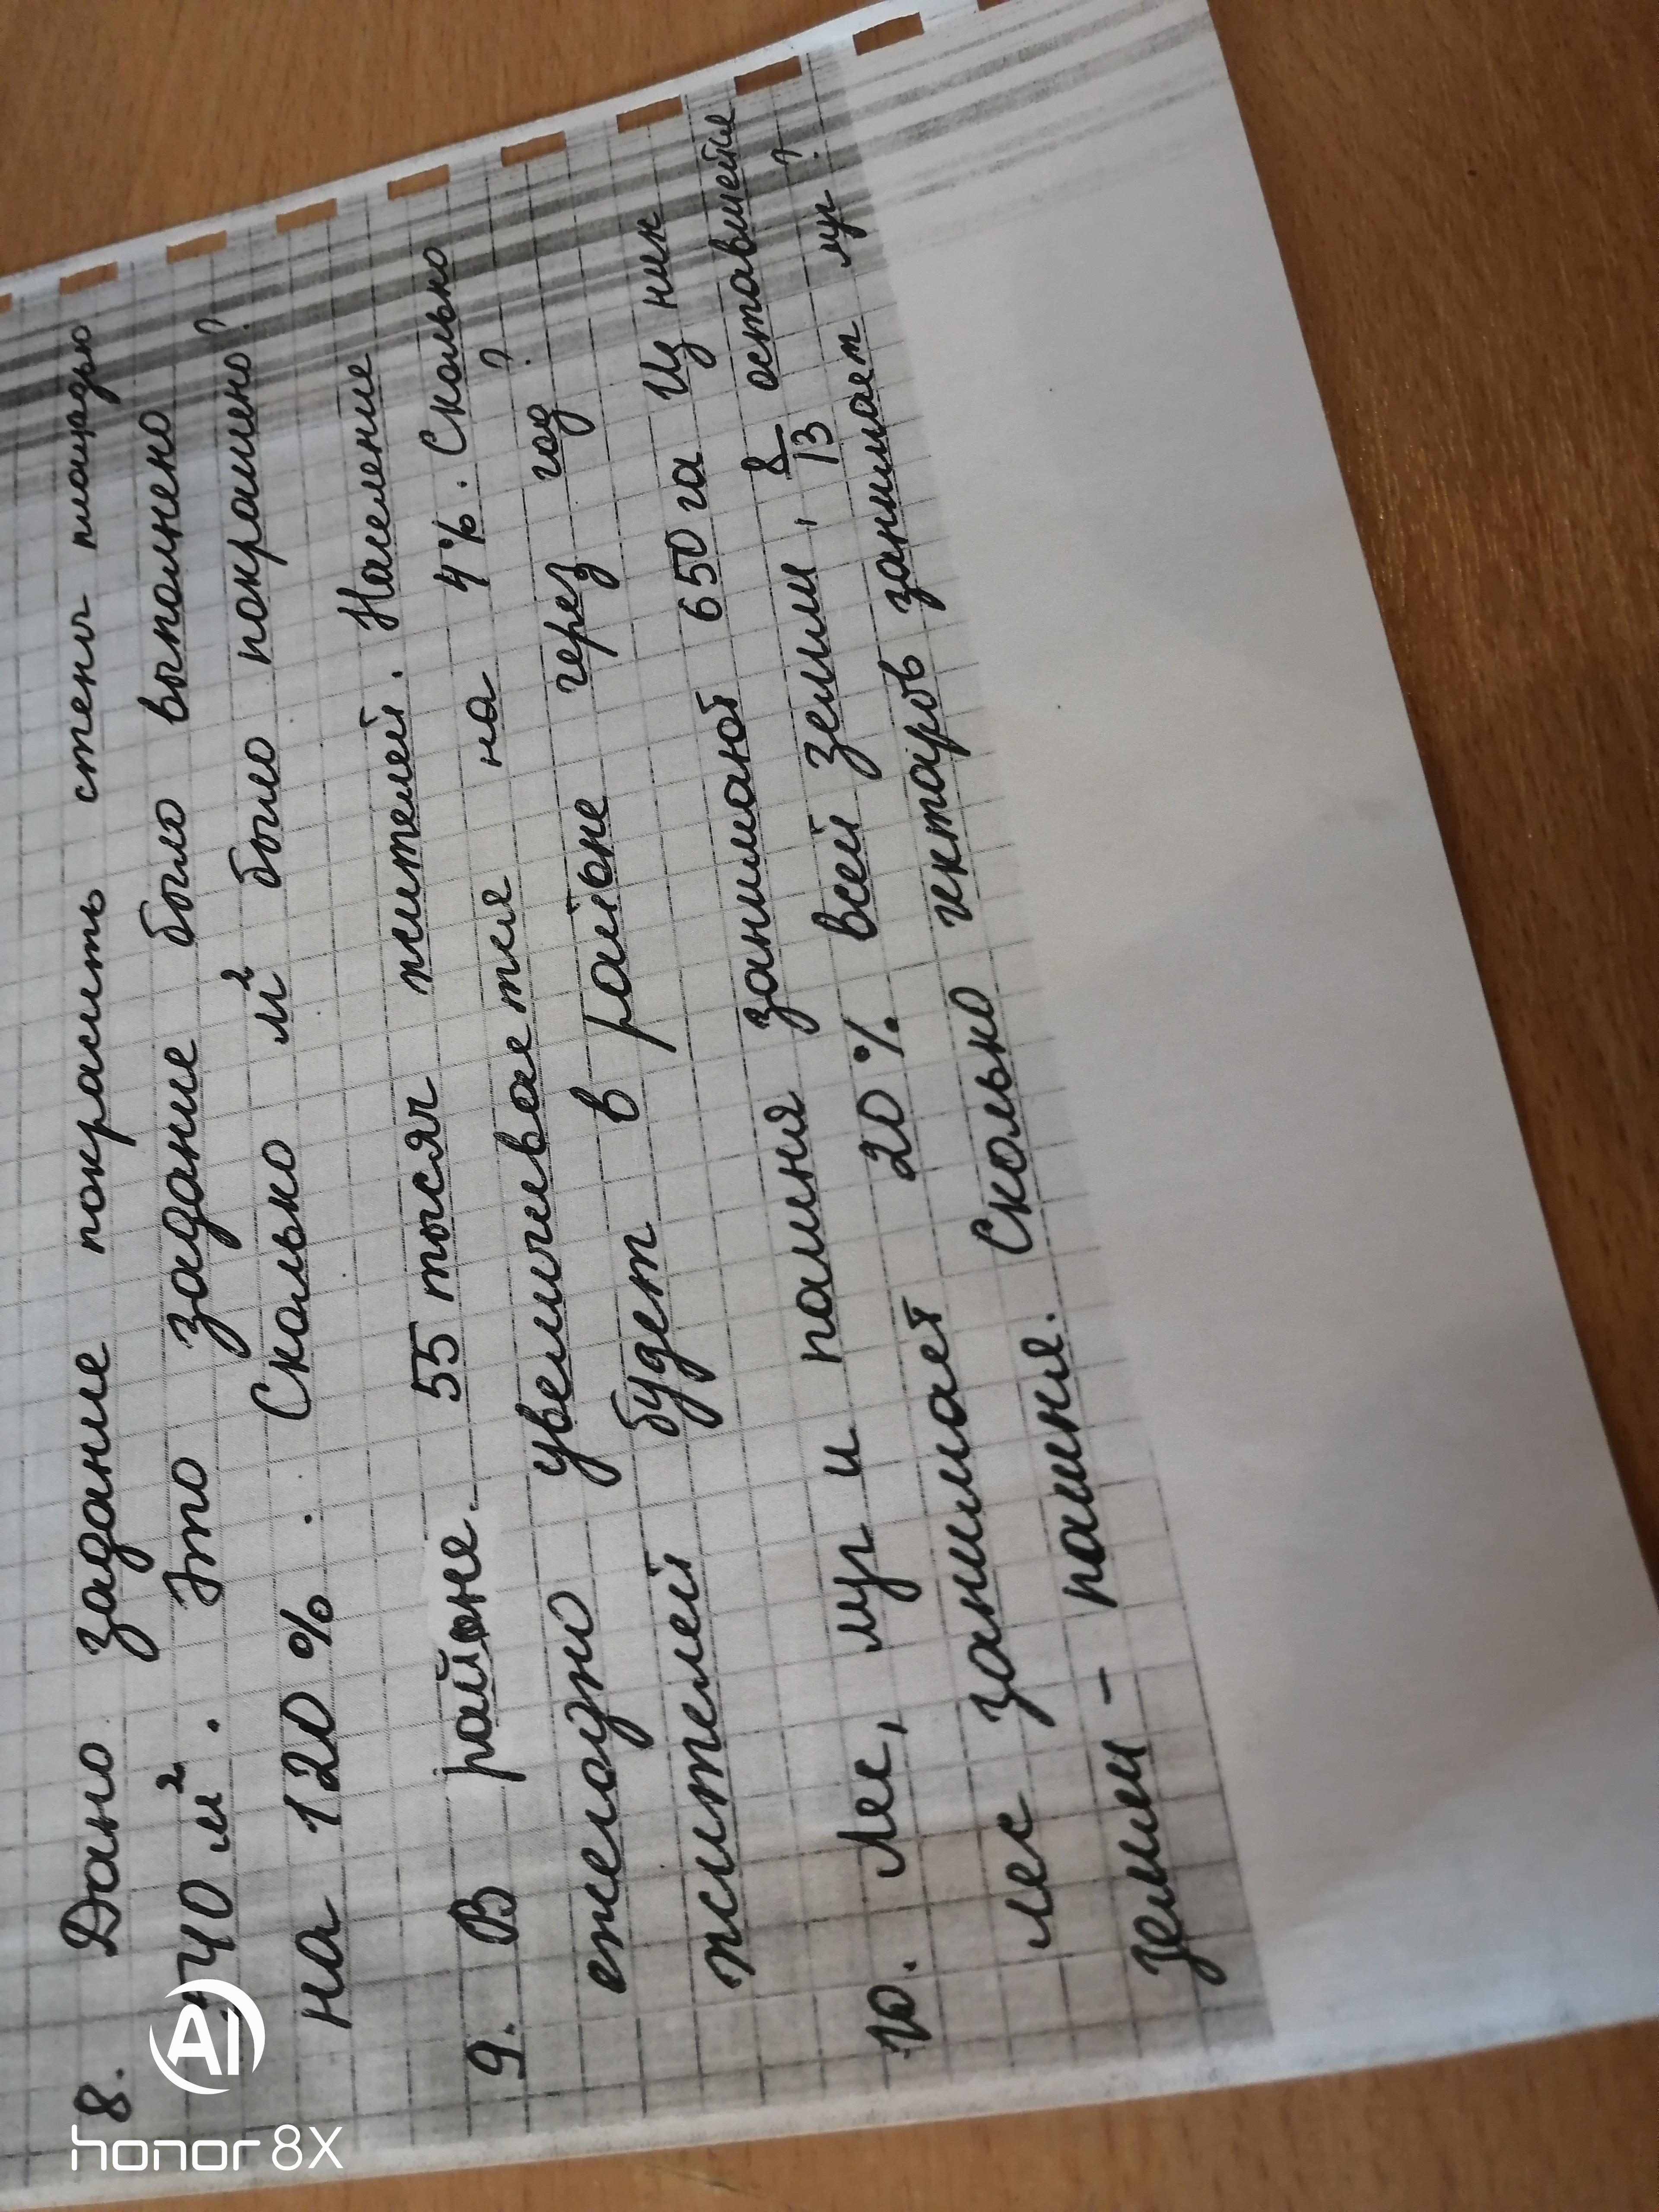 8. Дано задание покрасить стены площадью
40 м². Это задание было выполнено
на 120%. Сколько м² было покрашено?
9. В районе 55 тысяч жителей. Население
ежегодно увеличивается на 4%. Сколько
жителей будет в районе через год?
10. Лес, луг и пашня занимают 650 га Из них
лес занимает 20% всей земли, 8/13 оставшейся
земли - пашня. Сколько гектаров занимает луг?
AI
honor 8X